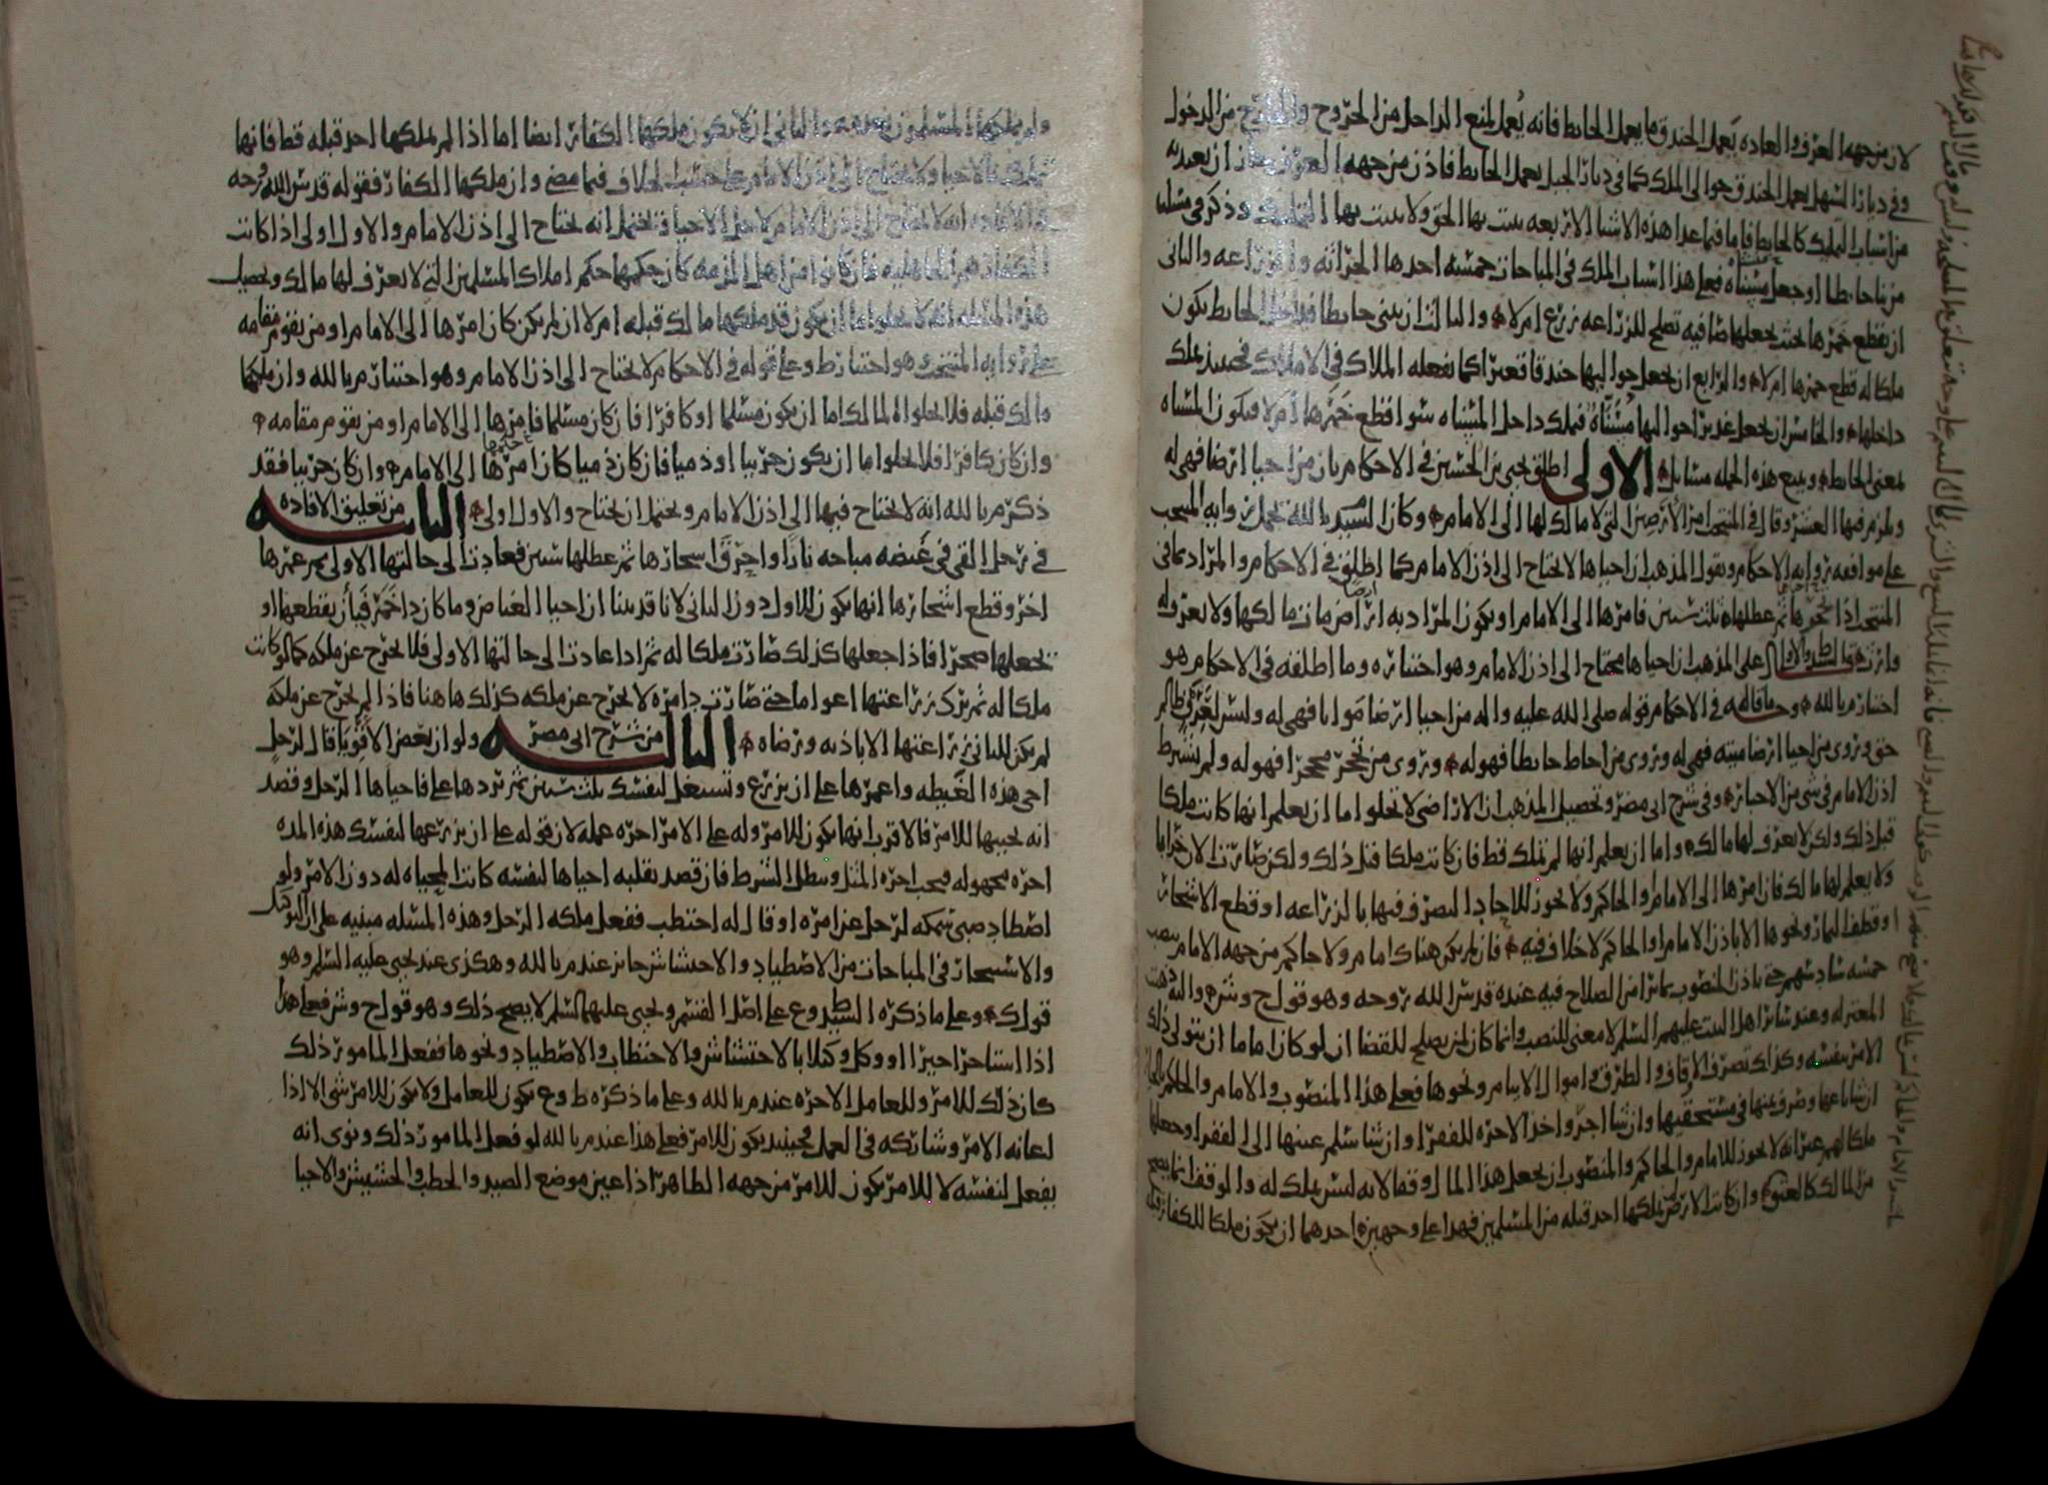 لان من جهه العرف والعاده يعمل الخندق ما يعمل الحايط فانه يعمل لمنع الداخل من الخروج والخارج من الدخول
وفي ديار السهل يعمل الخندق حوالى الملك كما في ديار الجبل يعمل الحايط فاذن من جهه العرف يجاز ان يعد به
من اسباب الملك كالحايط فاما فيما عدا هذه الاشيا الاربعه يثبت بها الحق ولا يثبت بها الملك وذكر في مسله
من بنا حايطا او جعل مسناه فعلى هذا اسباب الملك في المباحات خمسه احدها الحراثه والزراعه والثاني
ان يقطع خمرها بحيث يجعلها صافيه تصلح للزراعه زرع ام لا والثالث ان يبني حايطا فداخل الحايط يكون
ملكا له قطع خمرها ام لا والرابع ان يجعل حواليها خندقا قعيرا كما يفعله الملاك في الاملاك فحينئذ يملك
داخلها والخامس ان يجعل غديرا حواليها مسناه فيملك داخل المسناه سوا قطع خمرها ام لا فيكون المسناه
بمعنى الحايط ويتبع هذه الجمله مسايل الاولى اطلق يحيى بن الحسين في الاحكام بان من احيا ارضا فهي له
ويلزم فيها العشر وقال في المنتخب امر الارضين التي لا مالك لها الى الامام وكان السيد بالله يحمل رواية المنتخب
على موافقه رواية الاحكام ويقول المذهب ان احياها لا يحتاج الى اذن الامام كما اطلق في الاحكام والمراد بما في
المنتخب اذا تحجرها ثم عطلها ثلث سنين فامرها الى الامام او يكون المراد به ارض مات مالكها ولا يعرف له
وارث على المذهب ان احياها يحتاج الى اذن الامام وهو اختيار وما اطلقه في الاحكام هو
اختيار م بالله وجه ما قاله في الاحكام قوله صلى الله عليه واله من احيا ارضا مواتا فهي له وليس لعرق ظالم
حق وروي من احيا ارضا ميته فهي له وروي من احاط حايطا فهو له وروي من تحجر محجرا فهو له ولم يشترط
اذن الامام في شي من الاخبار وفي شرح ابي مضر وتحصيل المذهب ان الاراضي لا تخلوا اما ان يعلم انها كانت ملكا
قبل ذلك ولكن لا يعرف لها مالك واما ان يعلم انها لم تملك قط فان كانت ملكا قبل ذلك ولكن صارت الان خرابا
ولا يعلم لها مالك فان امرها الى الامام او الحاكم ولا يجوز للاحاد التصرف فيها بالزراعه او قطع الاشجار
او قطف الثمار ونحوها الا باذن الامام او الحاكم لا خلاف فيه فان لم يكن هناك امام ولا حاكم من جهه الامام
خمسه منهم حتى ياذن المنصوب بما يرا من الصلاح فيه عنده قدس الله روحه وهو قول ح وش واليه ذهبت
المعتزله وعند ساير اهل البيت عليهم السلم لا معنى للنصب وانما كان لمن يصلح للقضا ان لو كان اماما ان يتولى ذلك
الامر بنفسه وكذلك تصرف الاوقاف والطرق واموال الايتام ونحوها فعلى هذا المنصوب والامام والحاكم
ان شا باعها وصرف ثمنها في مستحقيها وان شا اجر واخذ الاجره للفقرا وان شا سلم عينها الى الفقرا وجعلها
ملكا لهم غير انه لا يجوز للامام والحاكم والمنصوب ان يجعل هذا المال وقفا لانه ليس بملك له والوقف انما يصح
من المالك كالعتق وان كانت الارض لم يملكها احد قبله من المسلمين فهذا على وجهين احدهما ان يكون ملكا للكفار قبله
ولم يملكها المسلمون بعد والثاني ان لا يكون ملكها الكفار ايضا اما اذا لم يملكها احد قبله قط فانها
تملك بالاحيا ولا يحتاج الى اذن الامام على حسب الخلاف فيما مضى وان ملكها الكفار فقوله قدس الله روحه
في الافاده انه لا يحتاج الى اذن الامام لاجل الاحيا ويحتمل انه يحتاج الى اذن الامام والاول اولى اذا كانت
الكفار هم الجاهليه فان كان من اهل الذمه كان حكمها حكم املاك المسلمين التي لا يعرف لها مالك وتحصيل
هذه المسله انه لا يخلوا اما ان يكون قد ملكها مالك قبله ام لا ان لم يكن كان امرها الى الامام او من يقوم مقامه
على رواية المنتخب وهو اختيار ط وعلى قوله في الاحكام لا يحتاج الى اذن الامام وهو اختيار م بالله وان ملكها
مالك قبله فلا يخلوا المالك اما ان يكون مسلما او كافرا فان كان مسلما فامرها الى الامام او من يقوم مقامه
وان كان كافرا فلا يخلوا اما ان يكون حربيا او ذميا فان كان ذميا كان امرها الى الامام وان كان حربيا فقد
ذكر م بالله انه لا يحتاج فيها الى اذن الامام ويحتمل ان يحتاج والاول اولى الثانيه من تعليق الافاده
في رجل القى في غيضه مباحه نارا واحرق اشجارها ثم عطلها سنين فعادت الى حالتها الاولى ثم عمرها
اخر وقطع اشجارها انها يكون للاول دون الثاني لانا قد بينا ان احيا الغياض وما كان ذا خمر فبان يقطعها او
يجعلها محجرا فاذا جعلها كذلك صارت ملكا له ثم اذا عادت الى حالتها الاولى فلا يخرج عن ملكه كما لو كانت
ملكا له ثم ترك زراعتها اعواما حتى صارت دامره لا يخرج عن ملكه كذلك هاهنا فاذا لم يخرج عن ملكه
لم يكن للثاني زراعتها الا باذنه ورضاه الثالثه من شرح ابي مضر ولو ان بعض الاقويا قال لرجل
احي هذه الغيطه واعمرها على ان تزرع وتستغل لنفسك ثلث سنين ثم تردها علي فاحياها الرجل وقصد
انه يحييها للامر فالاقرب انها يكون للامر وله على الامر اجره عمله لان قوله على ان يزرعها لنفسك هذه المده
اجره مجهوله فيجب اجره المثل ويبطل الشرط فان قصد بقلبه احياها لنفسه كانت المحياه له دون الامر ولو
اصطاد صبي سمكه لرجل عن امره او قال له احتطب ففعل ملكه الرجل وهذه المسله مبنيه على ان التوكيل
والاستيجار في المباحات من الاصطياد والاحتشاش جايز عند م بالله وهكذى عند يحيى عليه السلم وهو
قول ك وعلى ما ذكره السيد ط وع على اصل القسم ويحيى عليهما السلم لا يصح ذلك وهو قول ح وش فعلى هذا
اذا استاجر اجيرا او وكل وكيلا بالاحتشاش والاحتطاب والاصطياد ونحوها ففعل المامور ذلك
كان ذلك للامر وللعامل الاجره عند م بالله وعلى ما ذكره ط وع يكون للعامل ولا يكون للامر شي الا اذا
اعانه الامر وشاركه في العمل فحينئذ يكون للامر فعلى هذا عند م بالله لو فعل المامور ذلك ونوى انه
يفعل لنفسه لا للامر يكون للامر من جهه الظاهر اذا عين موضع الصيد والحطب والحشيش والاحيا